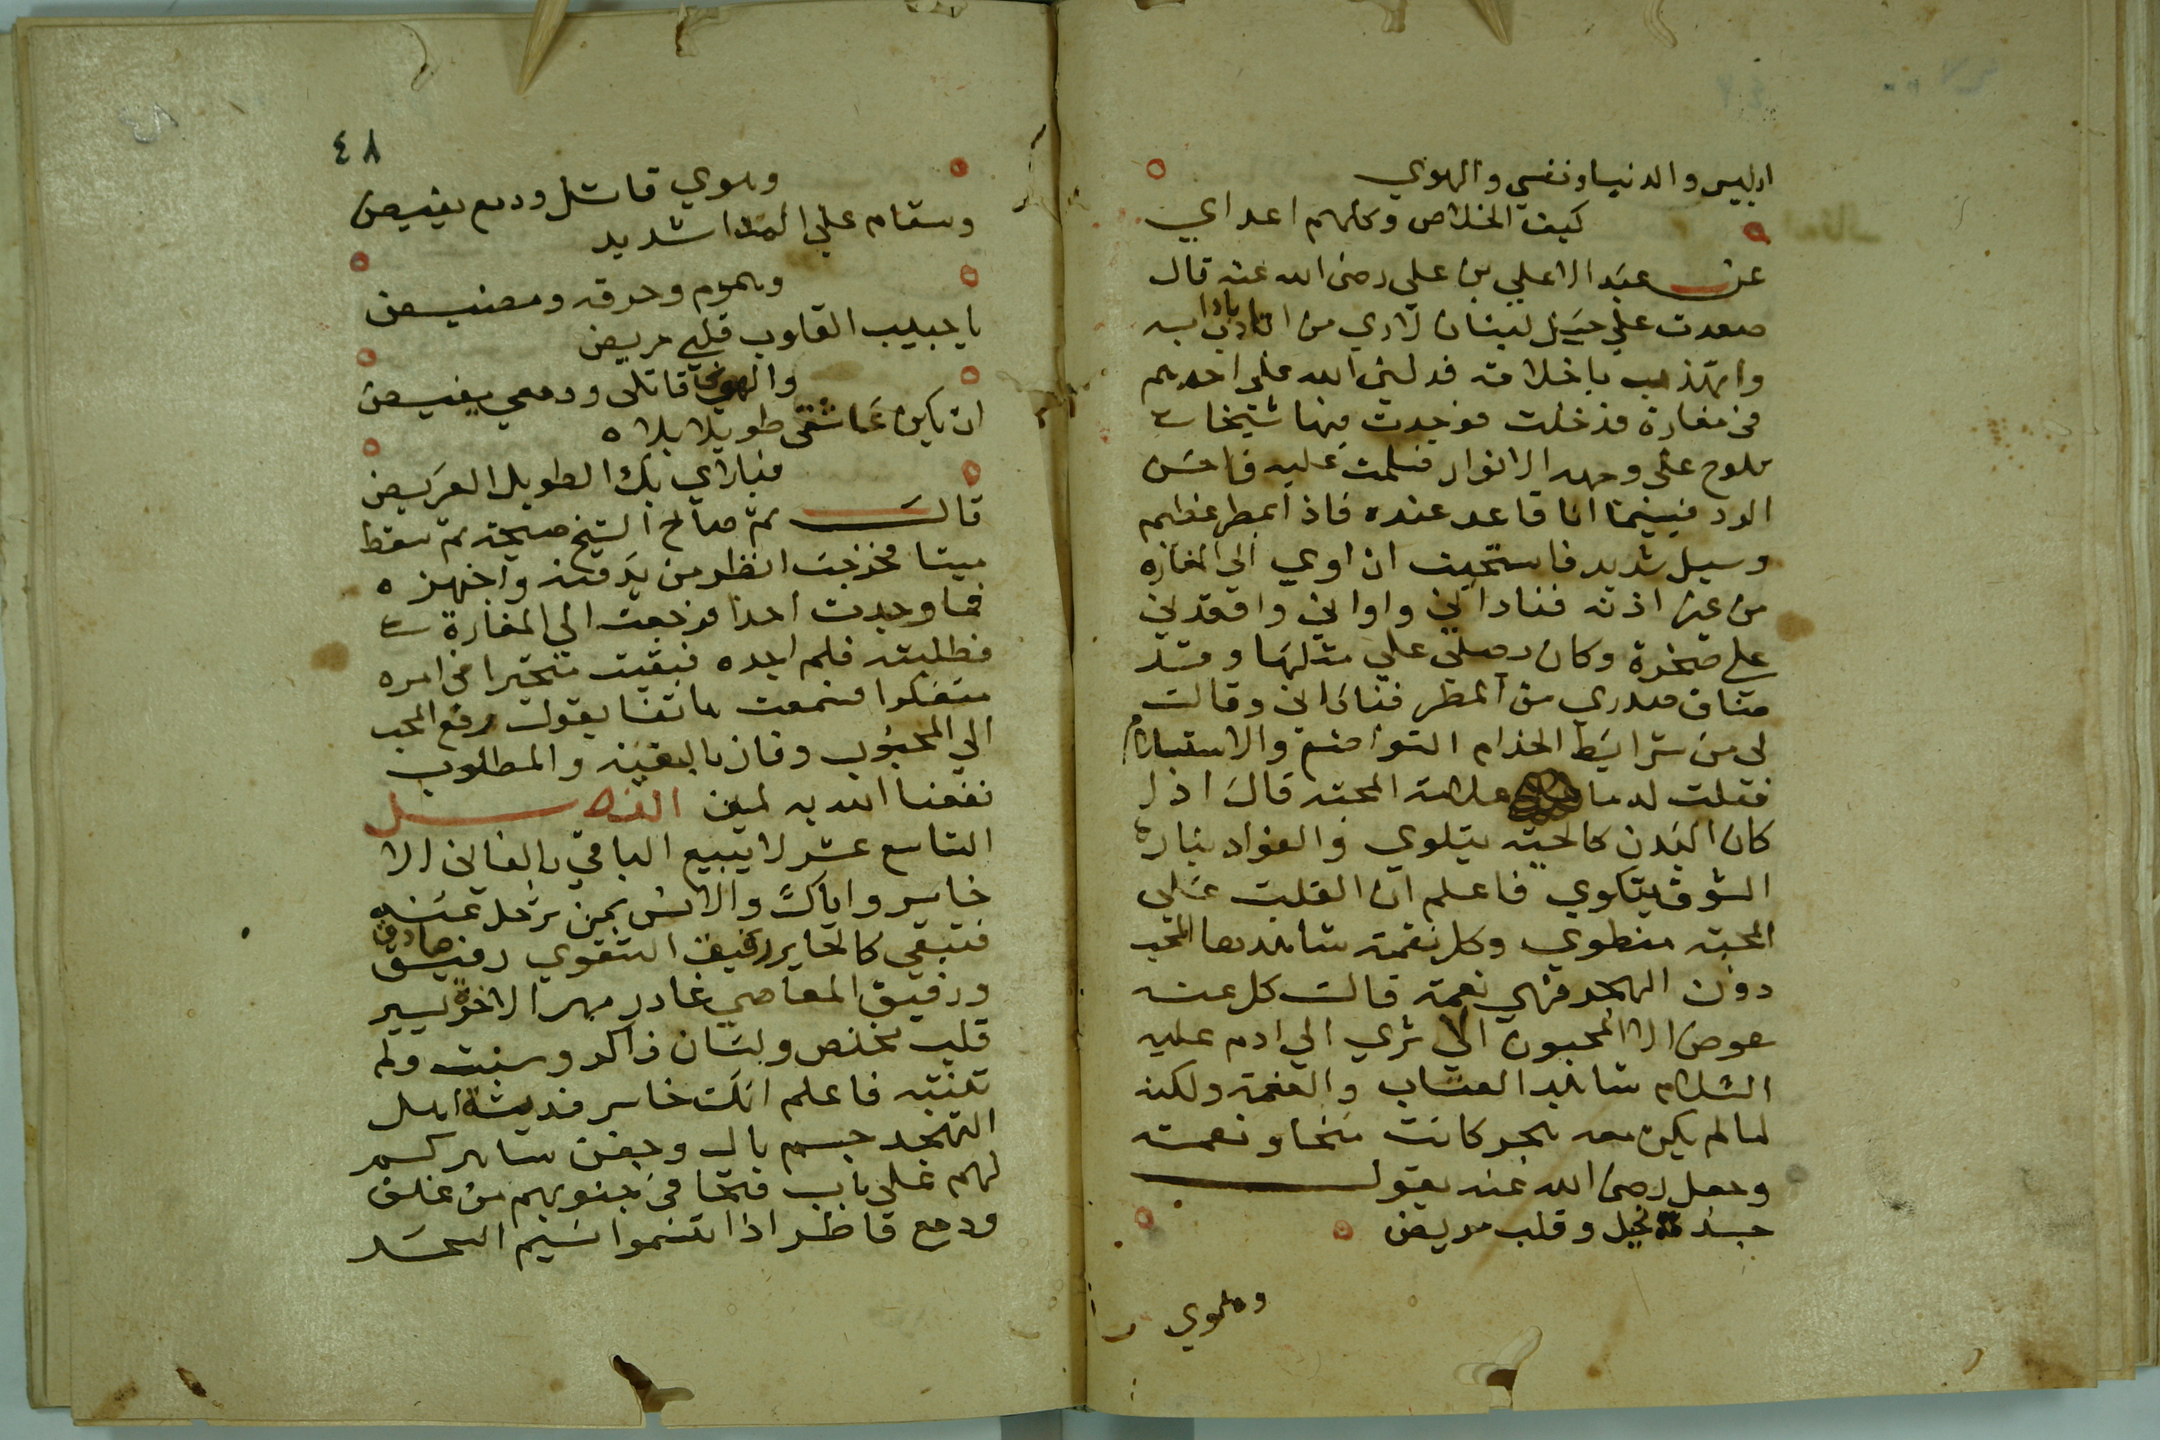 ابليس والدنيا ونفسي والهوي
كيف الخلاص وكلهم اعداي
عن عبد الاعلي بن علي رضى الله عنه قال
صعدت علي جبل لبنان لاري من اتادب بادابه
واتهذب باخلاقه فدلني الله على احدهم
فى مغارة فدخلت فوجدت فيها شيخا
تلوح على وجهه الانوار فسلمت عليه فاحسن
الرد فبينما انا قاعد عنده فاذا بمطر عظيم
وسيل شديد فاستحيت ان اوي الي المغاره
من غير اذنه فناداني واواني واقعدني
علي صخرة وكان يصلي علي مثلها وقد
ضاق صدري من المطر فناداني وقال
لى من شرايط الخدام التواضع والاستسلام
فقلت له ما علامة المحبه قال اذا
كان البدن كالحيه يتلوي والفواد بنار
الشوق يتكوي فاعلم ان القلب علي
المحبه منطوي وكل نقمة شاهدها المحب
دون الهجر فهي نعمة قالت كل عنه
عوض الا المحبون الي تري الي ادم عليه
السلام شاهد العتاب والنقمة ولكنه
لما لم يكن معه هجر كانت منحا ونعمت
وجعل رضى الله عنه يقول
جسد نحيل وقلب مريض
وهوي
٤٨
وهوي قاتل ودمع يفيض
وسقام علي المدا شديد
وهموم وحرقه ومضيض
يا حبيب القلوب قلبي مريض
والهوي قاتلى ودمعي يفيض
ان يكن عاشقى طويلا بلاه
فبلاي بك الطويل العريض
قال ثم صاح الشيخ صيحة ثم سقط
ميتا فخرجت انظر من يدفنه واجهزه
فما وجدت احدا فرجعت الي المغارة
فطلبته فلم اجده فبقيت متحيرا فى امره
متفكرا فسمعت هاتفا يقول رفع المحب
الي المحبوب وفاز بالبغيه والمطلوب
نفعنا الله به امين الفصل
التاسع عشر لا يبيع الباقي بالفانى الا
خاسر واياك والانس بمن ترحل عنه
فتبقي كالحاير رفيق التقوي رفيق صادق
ورفيق المعاصي غادر مهر الاخرة يسير
قلب مخلص ولسان ذاكر وسبت ولم
تنتبه فاعلم انك خاسر فديت اهل
التهجد جسم بال وجفن ساهر كم
لهم علي باب فتحا فى جنوبهم من
ودمع قاطر اذا تنسموا نسيم السحر